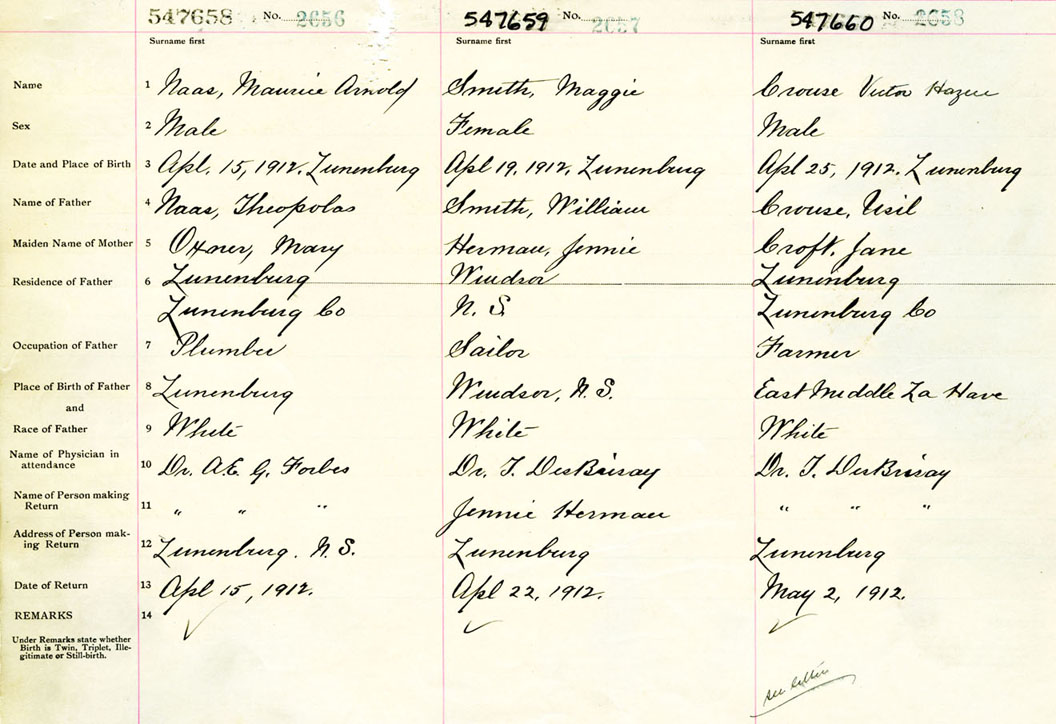 547658 No. 2656 547659 No. 2657 547660 No. 2658
Surname first Surname first Surname first
Name 1 Naas, Maurice Arnold Smith, Maggie Crouse Victor Hazen
Sex 2 Male Female Male
Date and Place of Birth 3 Apl. 15, 1912. Lunenburg Apl 19, 1912. Lunenburg Apl 25, 1912. Lunenburg
Name of Father 4 Naas, Theopolas Smith, William Crouse, Usil
Maiden Name of Mother 5 Oxner, Mary Herman, Jennie Croft, Jane
Residence of Father 6 Lunenburg Windsor Lunenburg
Lunenburg Co N. S. Lunenburg Co
Occupation of Father 7 Plumber Sailor Farmer
Place of Birth of Father 8 Lunenburg Windsor, N. S. East Middle La Have
and
Race of Father 9 White White White
Name of Physician in
attendance 10 Dr. A.E. G. Forbes Dr. T. DesBrisay Dr. T. DesBrisay
Name of Person making
Return 11 " " " Jennie Herman " " "
Address of Person mak-
ing Return 12 Lunenburg. N. S. Lunenburg Lunenburg
Date of Return 13 Apl 15, 1912. Apl 22, 1912. May 2, 1912.
REMARKS 14
Under Remarks state whether
Birth is Twin, Triplet, Ille-
gitimate or Still-birth.
see letter